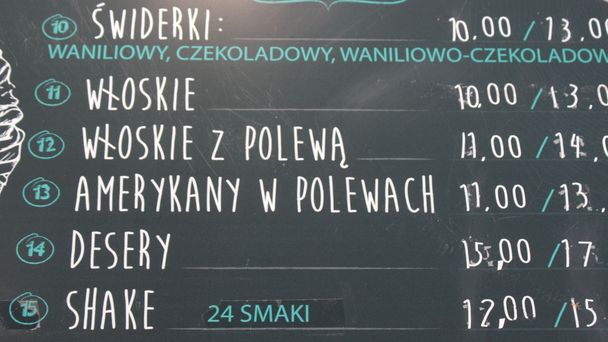 10 ŚWIDERKI: 10.00 / 13.0
WANILIOWY, CZEKOLADOWY, WANILIOWO-CZEKOLADOW
11 WŁOSKIE 10.00 / 13.0
12 WŁOSKIE Z POLEWĄ 11.00 / 14.
13 AMERYKANY W POLEWACH 11.00 / 13.
14 DESERY 15,00 / 17
15 SHAKE 24 SMAKI 12,00 / 15